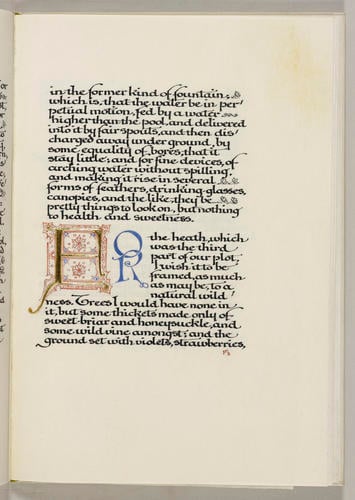 in the former kind of fountain;
which is, that the water be in per-
petual motion, fed by a water
higher than the pool, and delivered
into it by fair spouts, and then dis-
charged away under ground, by
some equality of bores, that it
stay little; and for fine devices, of
arching water without spilling,
and making it rise in several
forms of feathers, drinking glasses,
canopies, and the like, they be
pretty things to look on, but nothing
to health and sweetness.
FOR the heath, which
was the third
part of our plot,
I wish it to be
framed, as much
as may be, to a
natural wild-
ness. Trees I would have none in
it, but some thickets made only of
sweet-briar and honeysuckle, and
some wild vine amongst; and the
ground set with violets, strawberries,